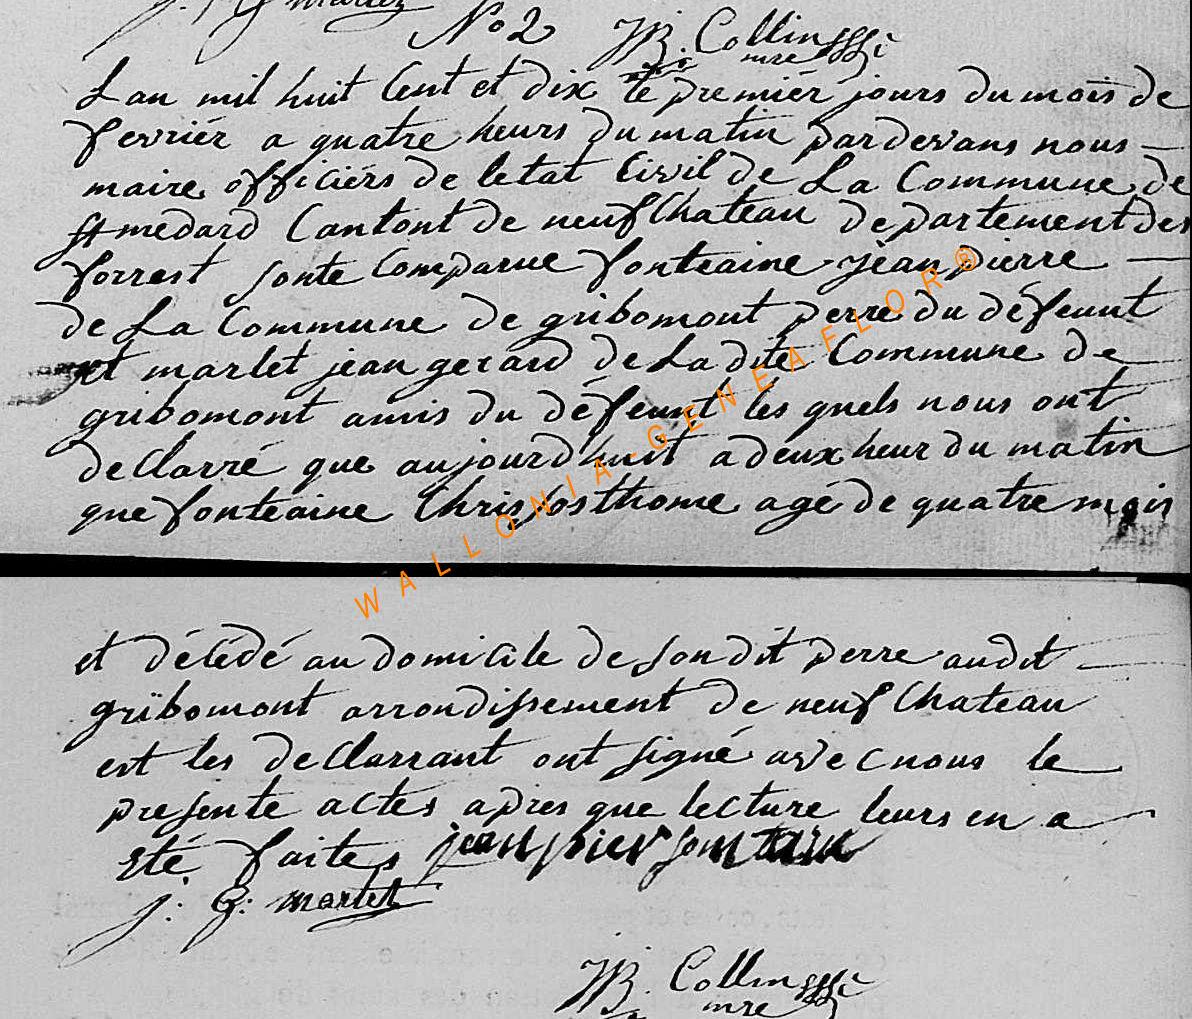 J. G martez
No 2 JB. Collin
mre
L'an mil huit Cent et dix le premiér jours du mois de
fevriér a quatre heurs du matin pardevans nous
maire officiérs de letat Civil de La Commune de
st medard Cantont de neufChateau departement des
forrest sonte Comparue fonteaine jean pierre
de La Commune de gribomont perre du défeunt
et marlet jean gerard de La dite Commune de
gribomont amis du défeunt les quels nous ont
deClarré que aujourdhuit a deux heur du matin
que fonteaine Chrisosthome agé de quatre mois
WALLONIA-GENEAFLOR®
et décédé au domicile de son dit perre audit
gribomont arrondissement de neufChateau
est les deClarrant ont signé avec nous le
presente actes apres que lecture leurs en a
eté faites jean pier fontain
J: G: martet
JB. Collin
mre